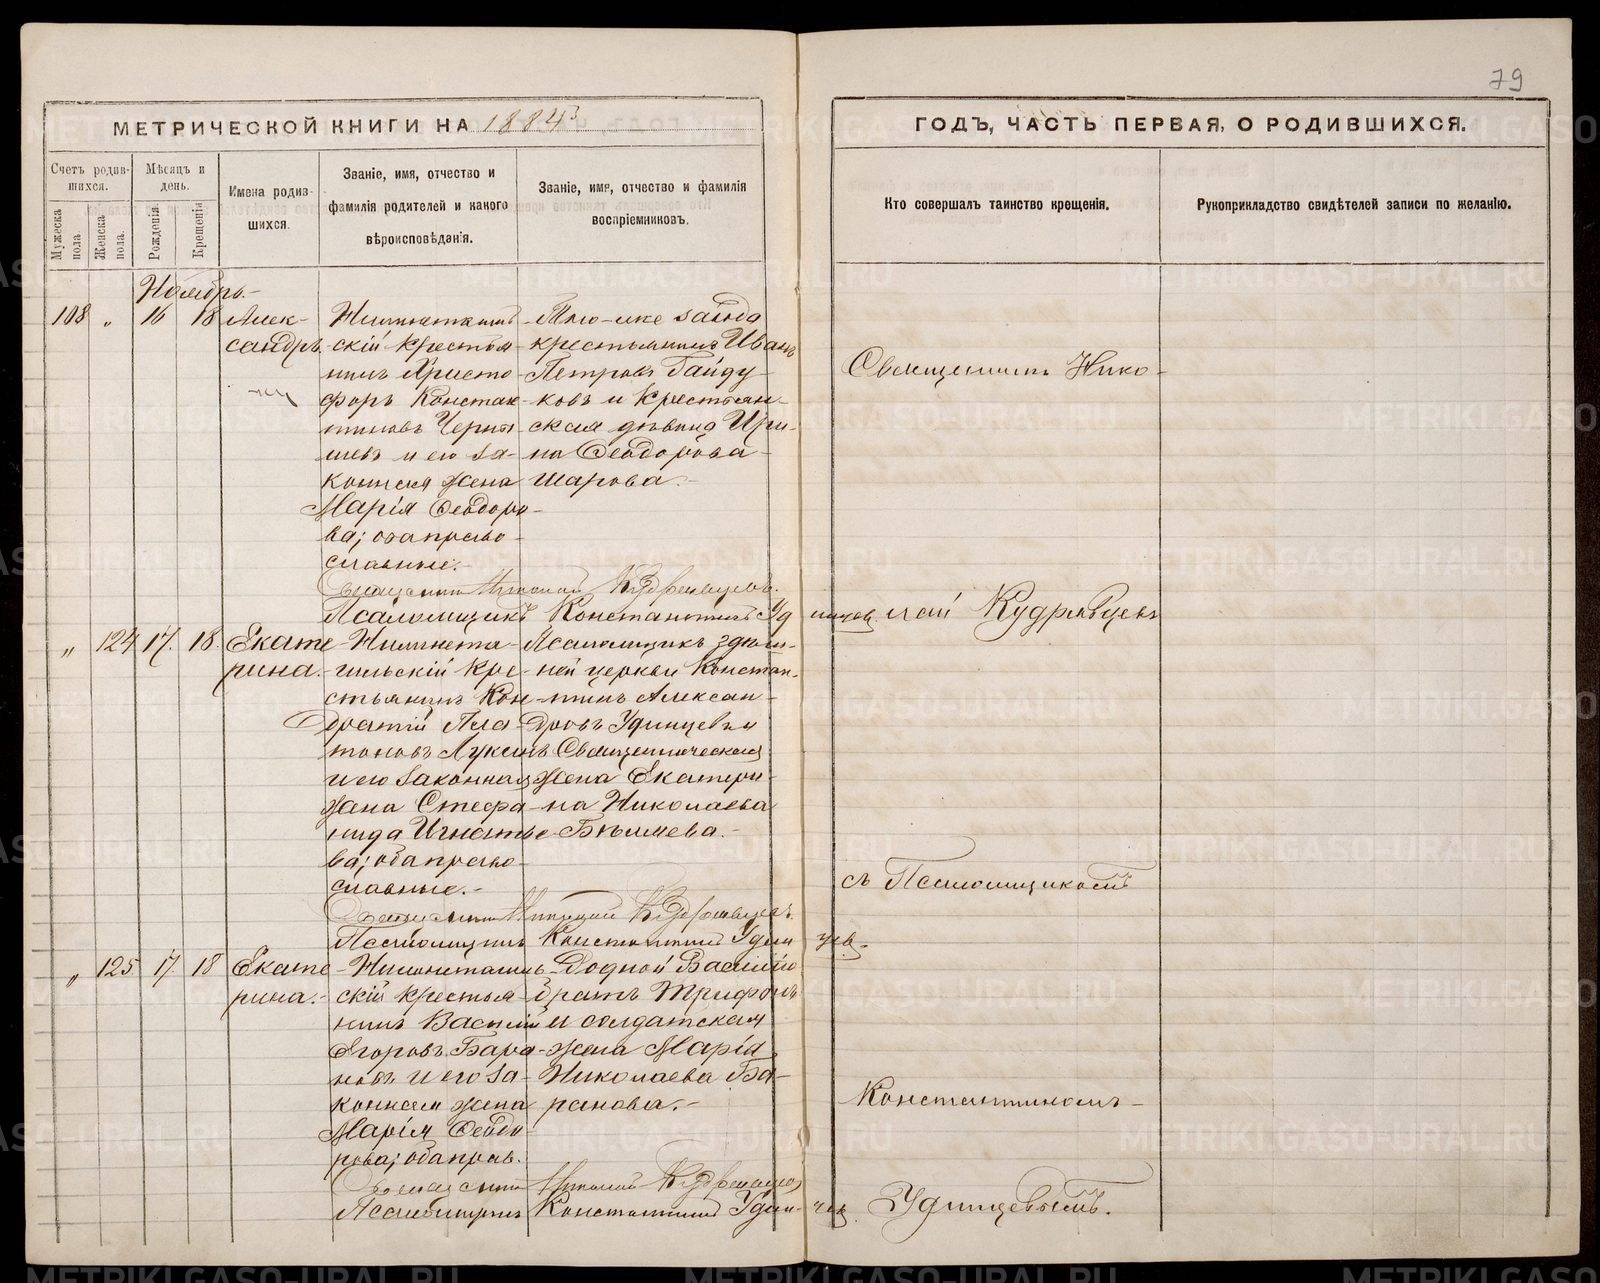 79
МЕТРИЧЕСКОЙ КНИГИ НА 1884
ГОДЪ, ЧАСТЬ ПЕРВАЯ, О РОДИВШИХСЯ.
Счетъ родив-
шихся.
Мужеска пола.
Женска пола.
Мѣсяцъ и
день.
Рожденія.
Крещенія
Имена родив-
шихся.
Званіе, имя, отчество и
фамилія родителей и какого
вѣроисповѣданія.
Званіе, имя, отчество и фамилія
воспріемниковъ.
Кто совершалъ таинство крещенія.
Рукоприкладство свидѣтелей записи по желанію.
Ноябрь.-
108 " 16 18
Алек-
сандръ
скій крестья-
нинъ Христо
форъ Констан-
тиновъ Черны
шевъ и его за-
конная жена
Марія Ѳеодоро-
ва; оба право-
славные.-
Того-же завода
крестьянинъ Иванъ
Петровъ Гайду-
ковъ и крестьян-
ская дѣвица Ири-
на Ѳеодорова
Шарова.-
Священникъ Николай Кудрявцевъ.
Псаломщикъ Константинъ Удинцев
" 124 17. 18.
Екате
рина.-
Нижнета-
гильскій кре-
стьянинъ Кон-
дратій Пла-
тоновъ Лукинъ
и его законная
жена Стефа-
нида Игнатье-
ва; оба право-
славные.-
Псаломщикъ здѣш-
ней церкви Констан-
тинъ Алексан-
дровъ Удинцевъ и
Священническая
жена Екатери-
на Николаева
Бѣляева.-
Священникъ Николай Кудрявцевъ.
Псаломщикъ Константинъ Удинцев.
" 125 17 18
Екате
рина.-
скій крестья-
нинъ Василій
Егоровъ Бара-
новъ и его за-
конная жена
Марія Ѳеодо-
рова; оба прав.
Родной Василію
братъ Трифонъ
и солдатская
жена Марія
Николаева Ба-
ранова.-
Священникъ Николай Кудрявцев
Псаломщикъ Константинъ Удинцев.
Священникъ Нико-
лай Кудрявцевъ
съ Псаломщикомъ
Константиномъ-
Удинцевымъ.
METRIKI.GASO-URAL.RU